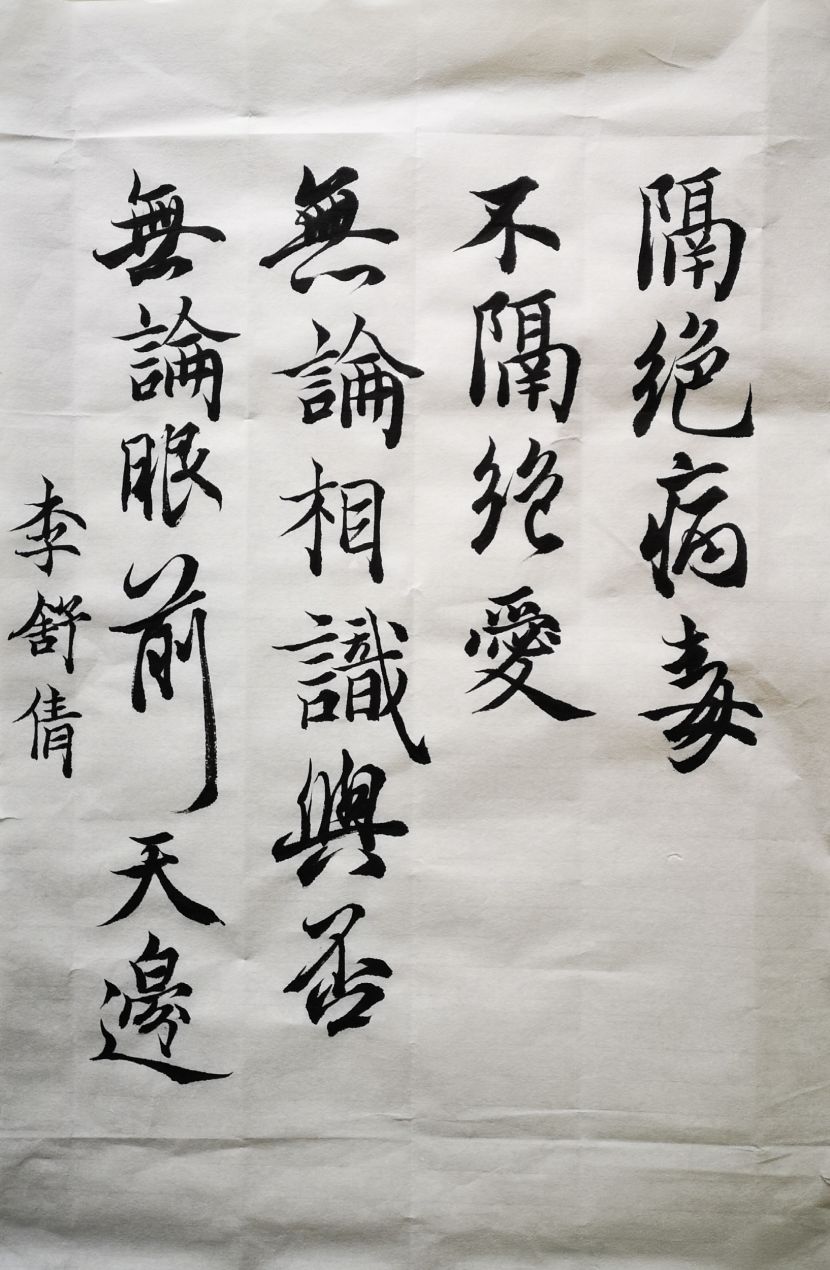 隔絶病毒
不隔絶愛
無論相識與否
無論眼前天邊
李舒倩